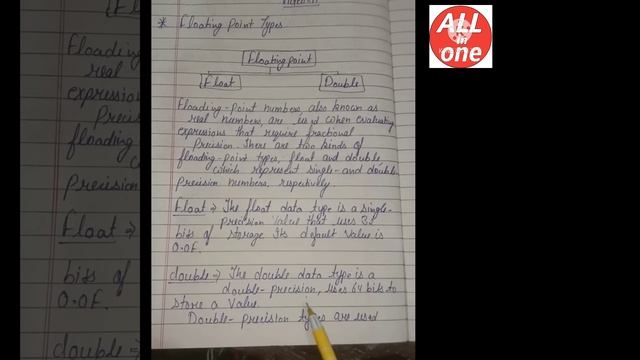 * Floating Point Types
Floating point
Float Double
Floading-point numbers, also known as
real numbers, are used when evaluating
expressions that require fractional
Precision. There are two kinds of
floading-point types, float and double,
which represent single- and double-
Precision numbers, respectively.
Float → The float data type is a single-
precision value that uses 32
bits of storage Its default value is
0.0F.
double → The double data type is a
double-precision, uses 64 bits to
store a value.
Double-precision types are used
ALL
in
one